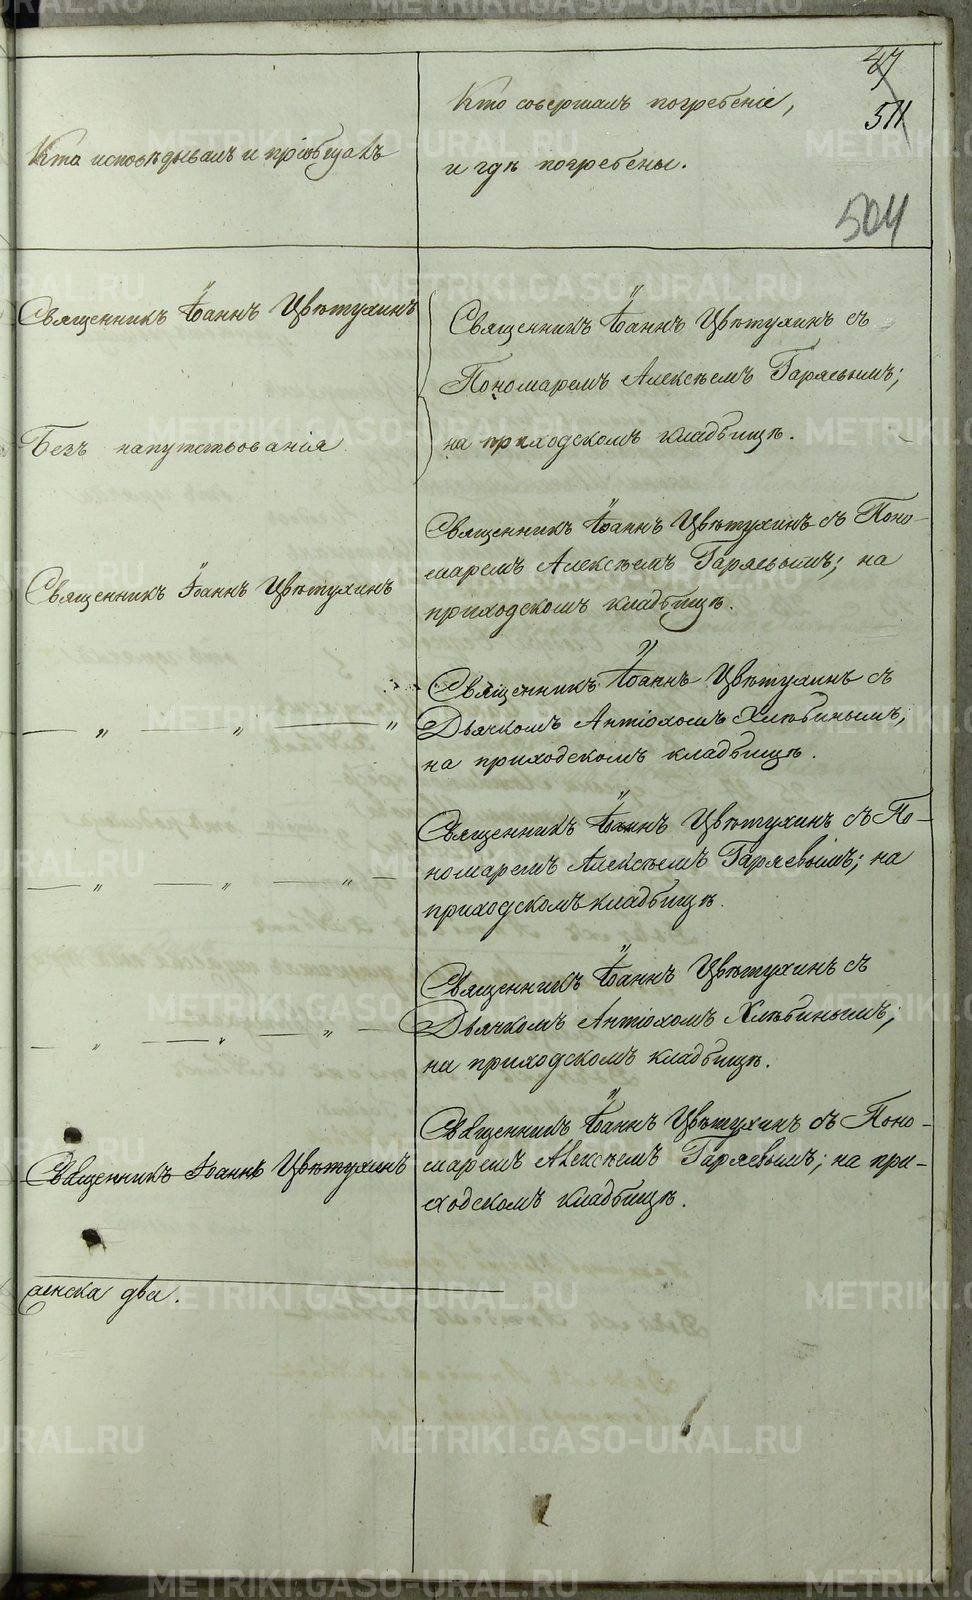 47
511
504
Кто исповѣдывалъ и пріобщалъ
Кто совершалъ погребеніе,
и гдѣ погребены.
Священникъ Іоаннъ Цвѣтухинъ
Безъ напутствованія
Священникъ Іоаннъ Цвѣтухинъ съ
Пономаремъ Алексѣемъ Гаряевымъ;
на приходскомъ кладбищѣ.
Священникъ Іоаннъ Цвѣтухинъ
Священникъ Іоаннъ Цвѣтухинъ съ Поно-
маремъ Алексѣемъ Гаряевымъ; на
приходскомъ кладбищѣ.
— „ „ — „
Священникъ Іоаннъ Цвѣтухинъ съ
Дьячкомъ Антіохомъ Хлѣбинымъ;
на приходскомъ кладбищѣ.
— „ — „ — „ —
Священникъ Іоаннъ Цвѣтухинъ съ По-
номаремъ Алексѣемъ Гаряевымъ; на
приходскомъ кладбищѣ.
— „ — „ — „ —
Священникъ Іоаннъ Цвѣтухинъ съ
Дьячкомъ Антіохомъ Хлѣбинымъ;
на приходскомъ кладбищѣ.
Священникъ Іоаннъ Цвѣтухинъ
Священникъ Іоаннъ Цвѣтухинъ съ Поно-
маремъ Алексѣемъ Гаряевымъ; на при-
ходскомъ кладбищѣ.
женска два.
METRIKI.GASO-URAL.RU